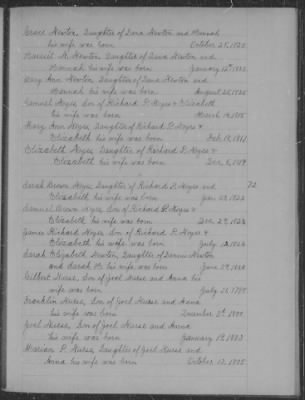 Grace Newton, Daughter of Dana Newton and Hannah
his wife was born October 25, 1820
Harriet N. Newton, Daughter of Dana Newton and
Hannah his wife was born January 12th 1823
Mary Ann Newton, Daughter of Dana Newton and
Hannah his wife was born August 28, 1825
Samuel Noyes, Son of Richard P. Noyes &
Elizabeth
his wife was born March 14, 1815
Mary Ann Noyes, Daughter of Richard P. Noyes &
Elizabeth his wife was born Feb. 19, 1817
Elizabeth Noyes, Daughter of Richard P. Noyes &
Elizabeth his wife was born Dec. 5, 1819
72
Sarah Brown Noyes, Daughter of Richard P. Noyes and
Elizabeth his wife was born Jan. 23, 1822
Samuel Brown Noyes, Son of Richard P. Noyes &
Elizabeth his wife was born Dec. 29, 1823
James Richard Noyes, Son of Richard P. Noyes &
Elizabeth his wife was born July 12, 1826
Sarah Elizabeth Newton, Daughter of Darius Newton
and Sarah his wife was born June 29, 1828
Gilbert Nurse, Son of Joel Nurse and Anna his
wife was born July 21, 1798
Franklin Nurse, Son of Joel Nurse and Anna
his wife was born December 8th 1800
Joel Nurse, Son of Joel Nurse and Anna
his wife was born January 19, 1803
Mariam P. Nurse, Daughter of Joel Nurse and
Anna his wife was born October 13, 1805